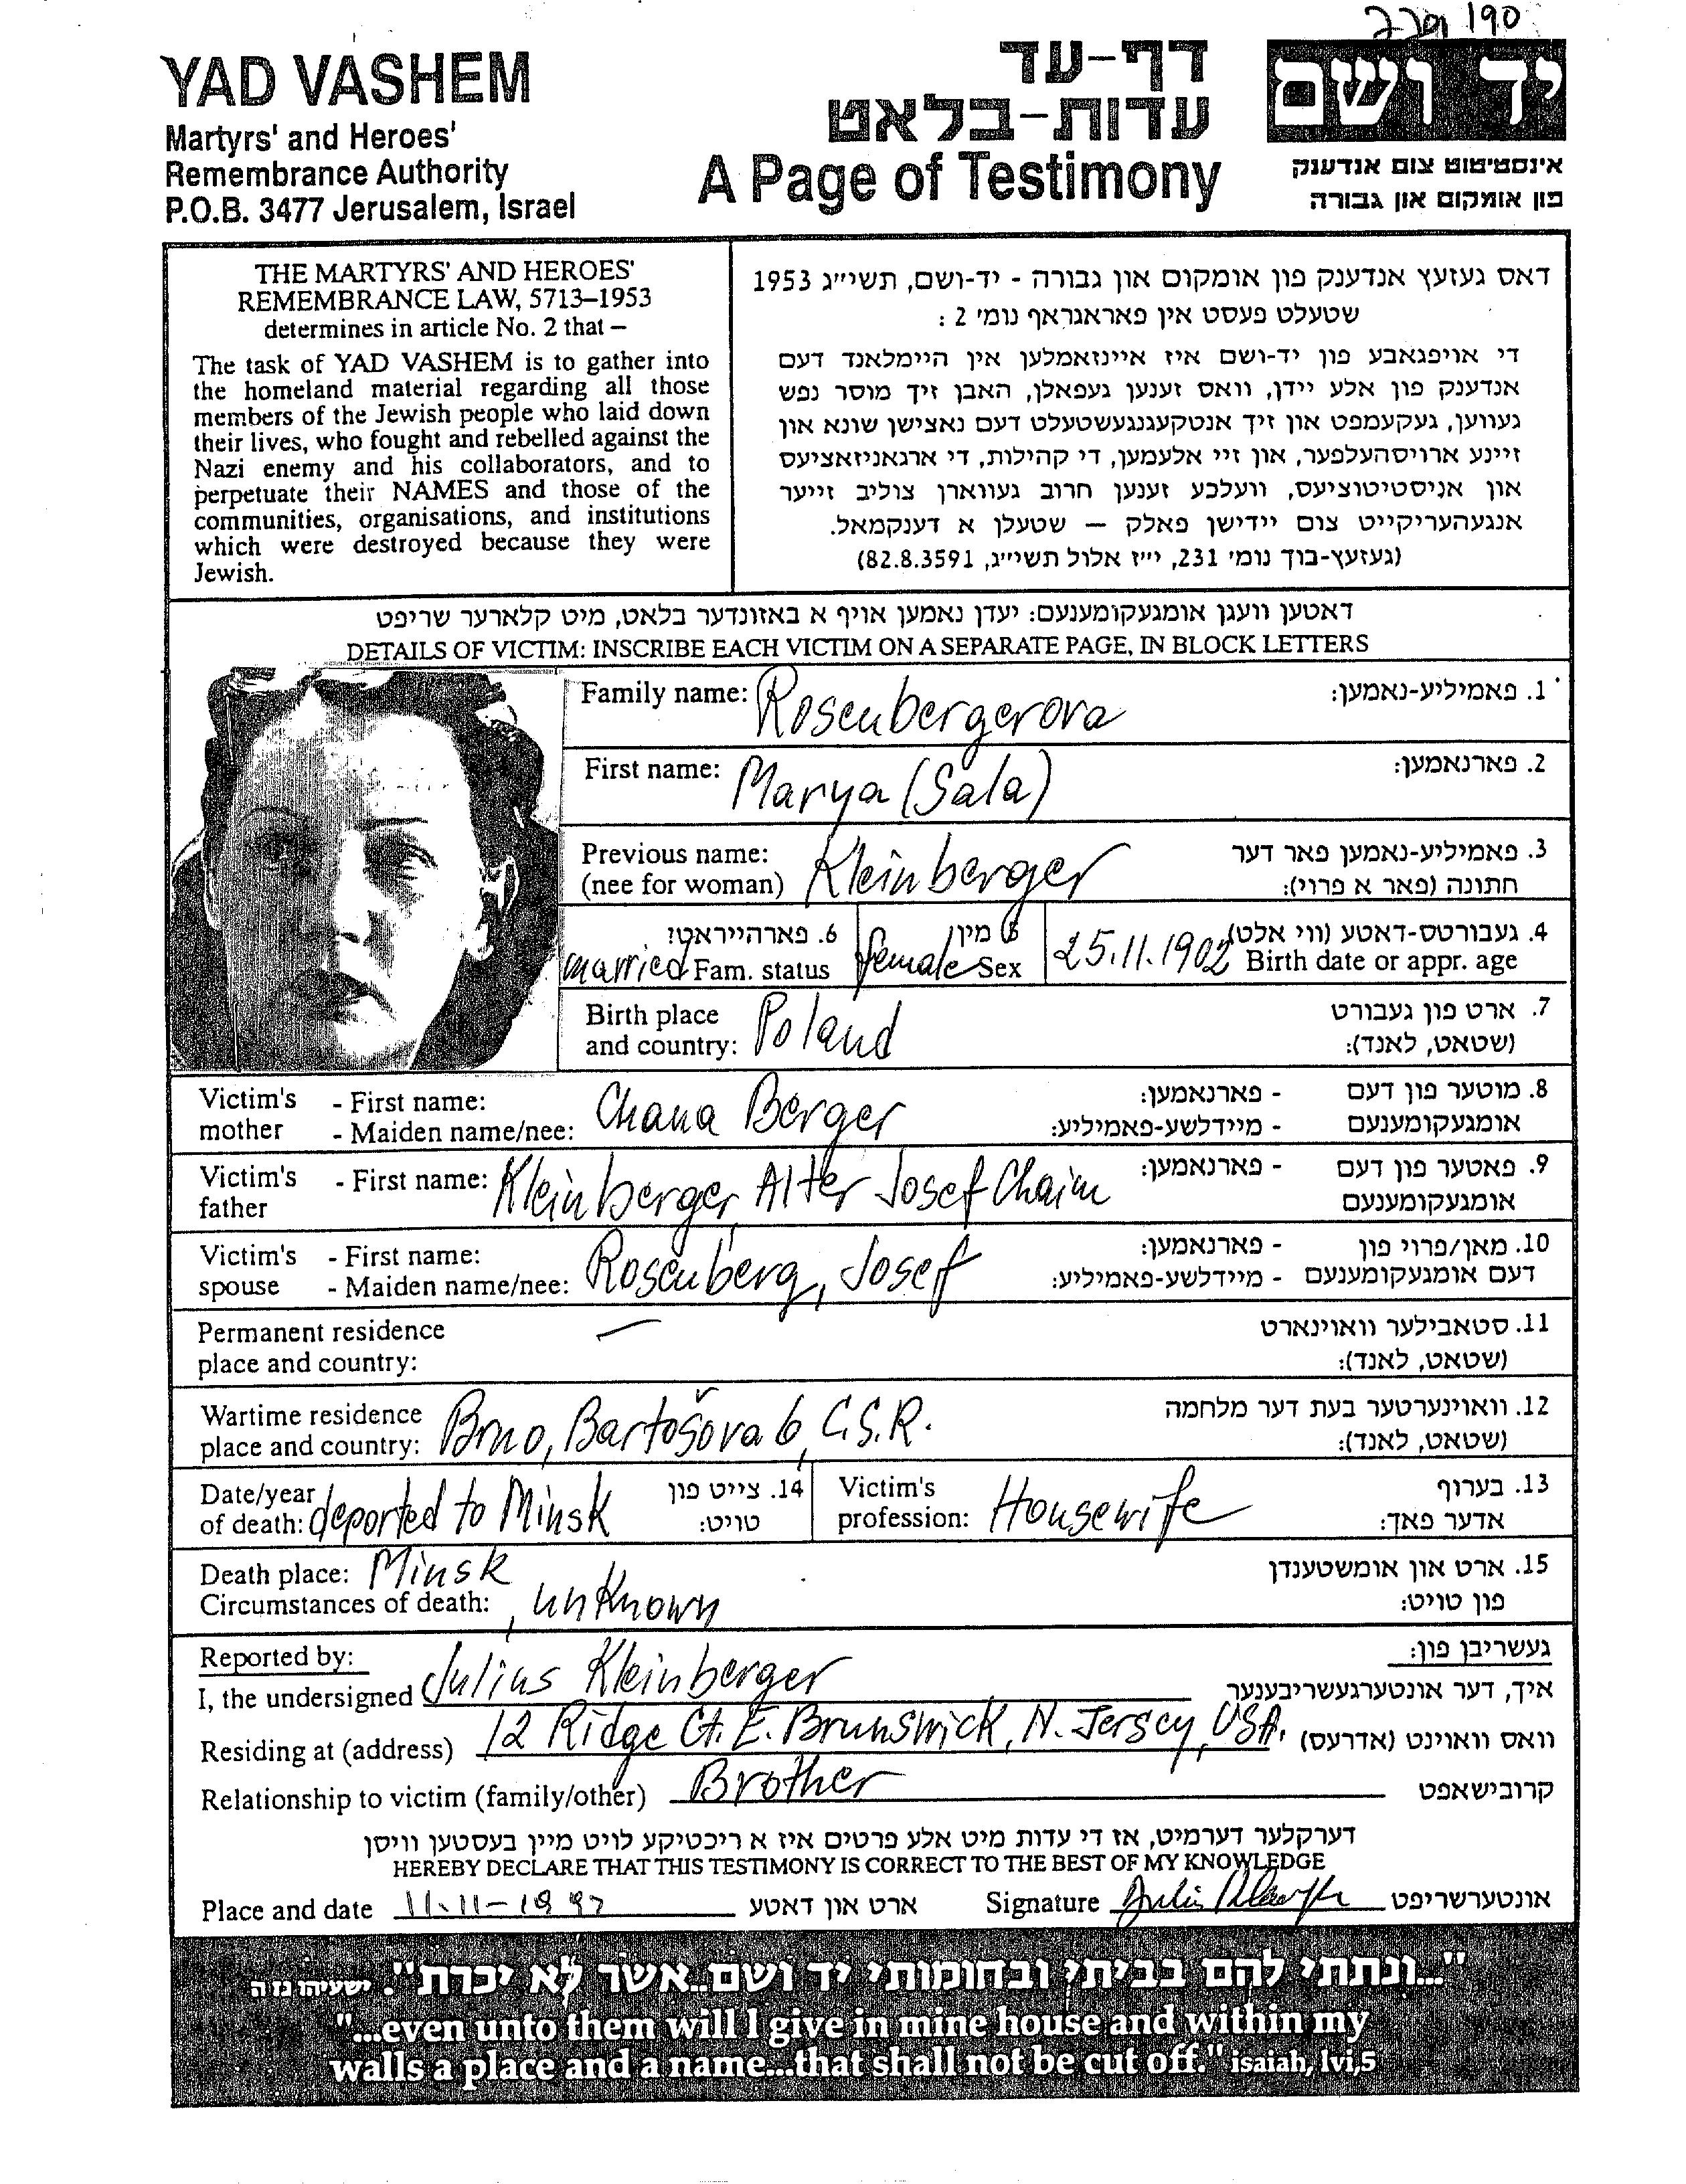 190
YAD VASHEM
Martyrs' and Heroes'
Remembrance Authority
P.O.B. 3477 Jerusalem, Israel
דף-עד
עדות-בלאט
A Page of Testimony
יד ושם
אינסטיטוט צום אנדענק
פון אומקום און גבורה
THE MARTYRS' AND HEROES'
REMEMBRANCE LAW, 5713–1953
determines in article No. 2 that –
The task of YAD VASHEM is to gather into
the homeland material regarding all those
members of the Jewish people who laid down
their lives, who fought and rebelled against the
Nazi enemy and his collaborators, and to
perpetuate their NAMES and those of the
communities, organisations, and institutions
which were destroyed because they were
Jewish.
דאס געזעץ אנדענק פון אומקום און גבורה - יד-ושם, תשי״ג 1953
שטעלט פעסט אין פאראגראף נומי 2 :
די אויפגאבע פון יד-ושם איז איינזאמלען אין היימלאנד דעם
אנדענק פון אלע יידן, וואס זענען געפאלן, האבן זיך מוסר נפש
געווען, געקעמפט און זיך אנטקעגנגעשטעלט דעם נאצישן שונא און
זיינע ארויסהעלפער, און זיי אלעמען, די קהילות, די ארגאניזאציעס
און אניסטיטוציעס, וועלכע זענען חרוב געווארן צוליב זייער
אנגעהעריקייט צום יידישן פאלק – שטעלן א דענקמאל.
(געזעץ-בוך נומי 231, י״ז אלול תשי״ג, 82.8.3591)
דאטען וועגן אומגעקומענעם: יעדן נאמען אויף א באזונדער בלאט, מיט קלארער שריפט
DETAILS OF VICTIM: INSCRIBE EACH VICTIM ON A SEPARATE PAGE, IN BLOCK LETTERS
Family name: Rosenbergerova 1. פאמיליע-נאמען:
First name: Marya (Sala) 2. פארנאמען:
Previous name: Kleinberger 3. פאמיליע-נאמען פאר דער
(nee for woman) חתונה (פאר א פרוי):
6. פארהייראט? 5 מין 4. געבורטס-דאטע (ווי אלט)
married Fam. status female Sex 25.11.1902 Birth date or appr. age
Birth place Poland 7. ארט פון געבורט
and country: (שטאט, לאנד):
Victim's - First name: Chana Berger - פארנאמען: 8. מוטער פון דעם
mother - Maiden name/nee: - מיידלשע-פאמיליע: אומגעקומענעם
Victim's - First name: Kleinberger, Alter Josef Chaim - פארנאמען: 9. פאטער פון דעם
father אומגעקומענעם
Victim's - First name: Rosenberg, Josef - פארנאמען: 10. מאן/פרוי פון
spouse - Maiden name/nee: - מיידלשע-פאמיליע: דעם אומגעקומענעם
Permanent residence – 11. סטאבילער וואוינארט
place and country: (שטאט, לאנד):
Wartime residence 12. וואוינערטער בעת דער מלחמה
place and country: Brno, Bartošova 6, Č.S.R. (שטאט, לאנד):
Date/year 14. צייט פון Victim's 13. בערוף
of death: deported to Minsk טויט: profession: Housewife אדער פאך:
Death place: Minsk 15. ארט און אומשטענדן
Circumstances of death: , unknown פון טויט:
Reported by: געשריבן פון:
I, the undersigned Julius Kleinberger איך, דער אונטערגעשריבענער
Residing at (address) 12 Ridge Ct. E. Brunswick, N. Jersey, USA. וואס וואוינט (אדרעס)
Relationship to victim (family/other) Brother קרובישאפט
דערקלער דערמיט, אז די עדות מיט אלע פרטים איז א ריכטיקע לויט מיין בעסטען וויסן
HEREBY DECLARE THAT THIS TESTIMONY IS CORRECT TO THE BEST OF MY KNOWLEDGE
Place and date 11-11-1997 ארט און דאטע Signature אונטערשריפט
"...ונתתי להם בביתי ובחומותי יד ושם..אשר לא יכרת". ישעיהו נו ה
"...even unto them will I give in mine house and within my
walls a place and a name...that shall not be cut off." isaiah, lvi,5